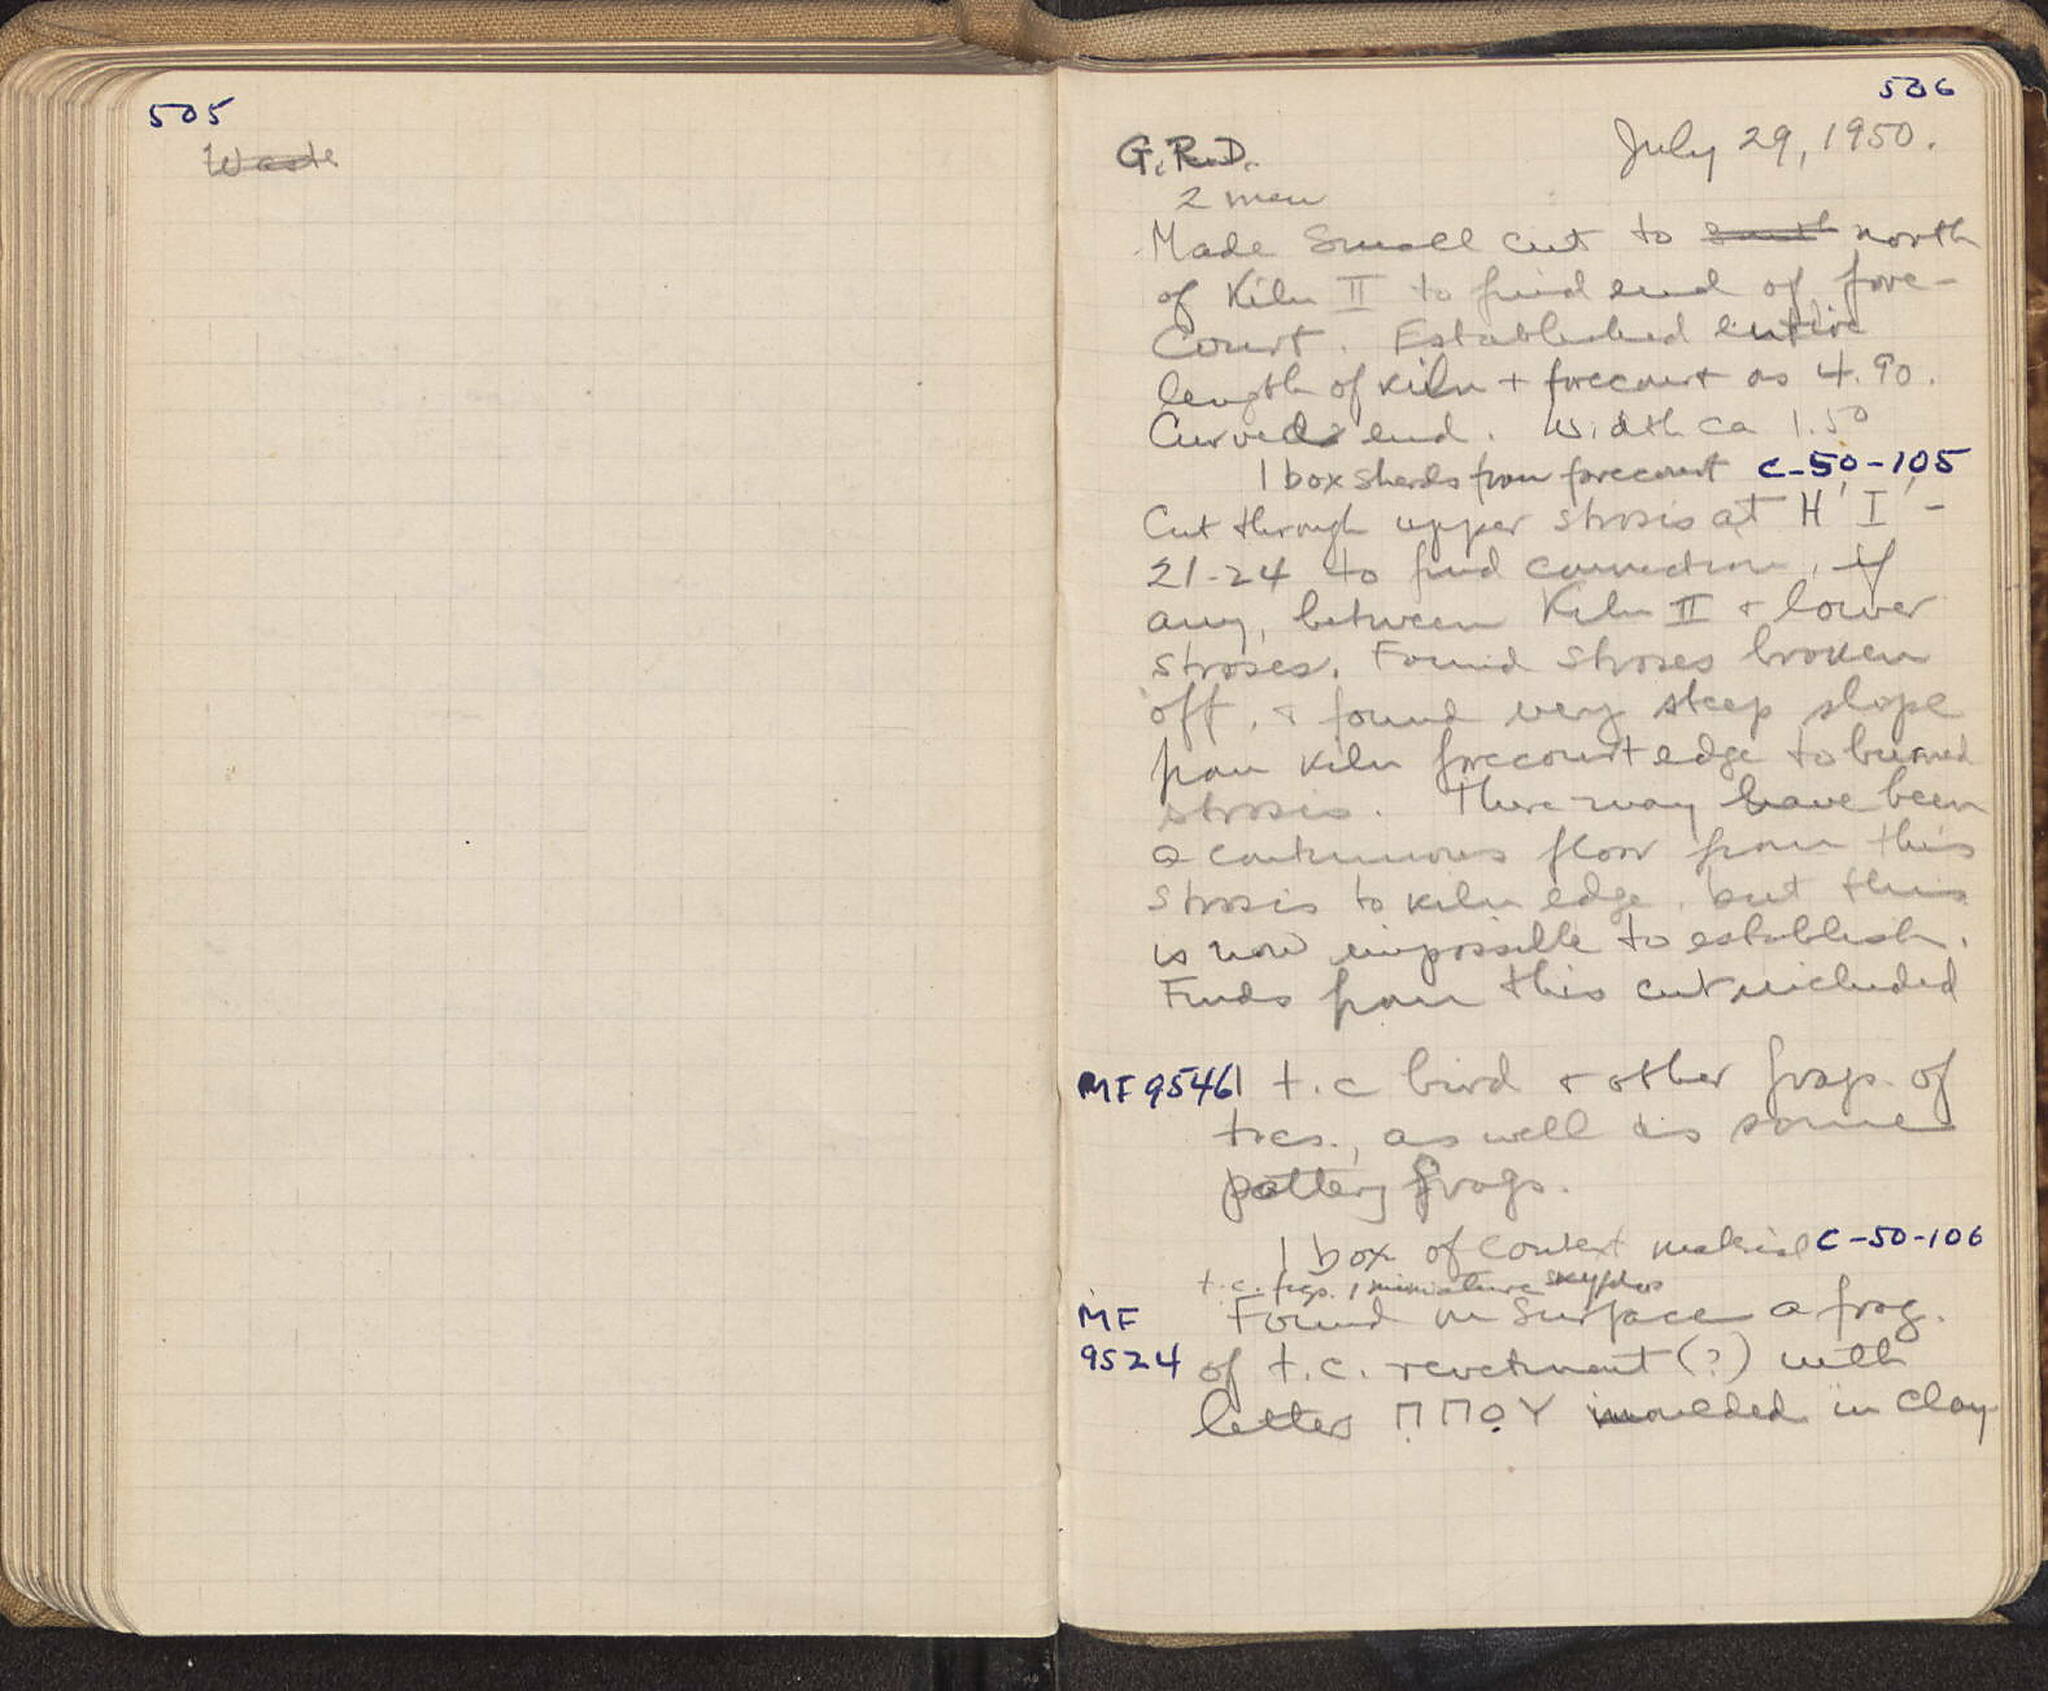 505
Waste
506
G.R.D. July 29, 1950.
2 men
Made small cut to south north
of Kiln II to find end of fore-
court. Established entire
length of kiln + forecourt as 4.90.
Curved end. Width ca 1.50
1 box sherds from forecourt C-50-105
Cut through upper strosis at H' I' -
21-24 to find connection, if
any, between Kiln II + lower
stroses. Found stroses broken
off, + found very steep slope
from kiln forecourt edge to burned
strosis. There may have been
a continuous floor from this
strosis to kiln edge, but this
is now impossible to establish.
Finds from this cut included
MF 9546 1 t.c bird + other frags. of
tcs., as well as some
pottery frags.
1 box of context material C-50-106
t.c. figs. 1 miniature skyphos
MF Found on surface a frag.
9524 of t.c. revetment (?) with
letters ΠΠΟΥ moulded in clay